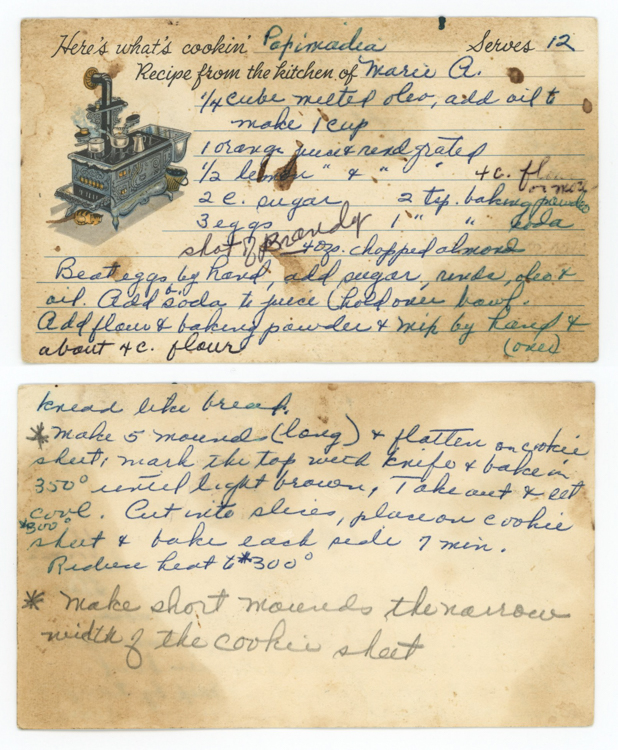 Here's what's cookin' Papimadia Serves 12
Recipe from the kitchen of Marie A.
1/4 cube melted oleo, add oil to
make 1 cup
1 orange juice & rend grated
1/2 lemon " & " " 4 c. flour
or more
2 c. sugar 2 tsp. baking powder
3 eggs 1 " " soda
shot of Brandy 4 oz. chopped almond
Beat eggs by hand, add sugar, rinds, oleo &
oil. Add soda to juice (hold over bowl.
Add flour & baking powder & mix by hand &
about 4 c. flour (over)
knead like bread.
* Make 5 mounds (long) & flatten on cookie
sheet, mark the top with knife & bake in
350° until light brown, Take out & let
cool. Cut into slices, place on cookie
*300°
sheet & bake each side 7 min.
Reduce heat to *300°
* Make short mounds the narrow
width of the cookie sheet